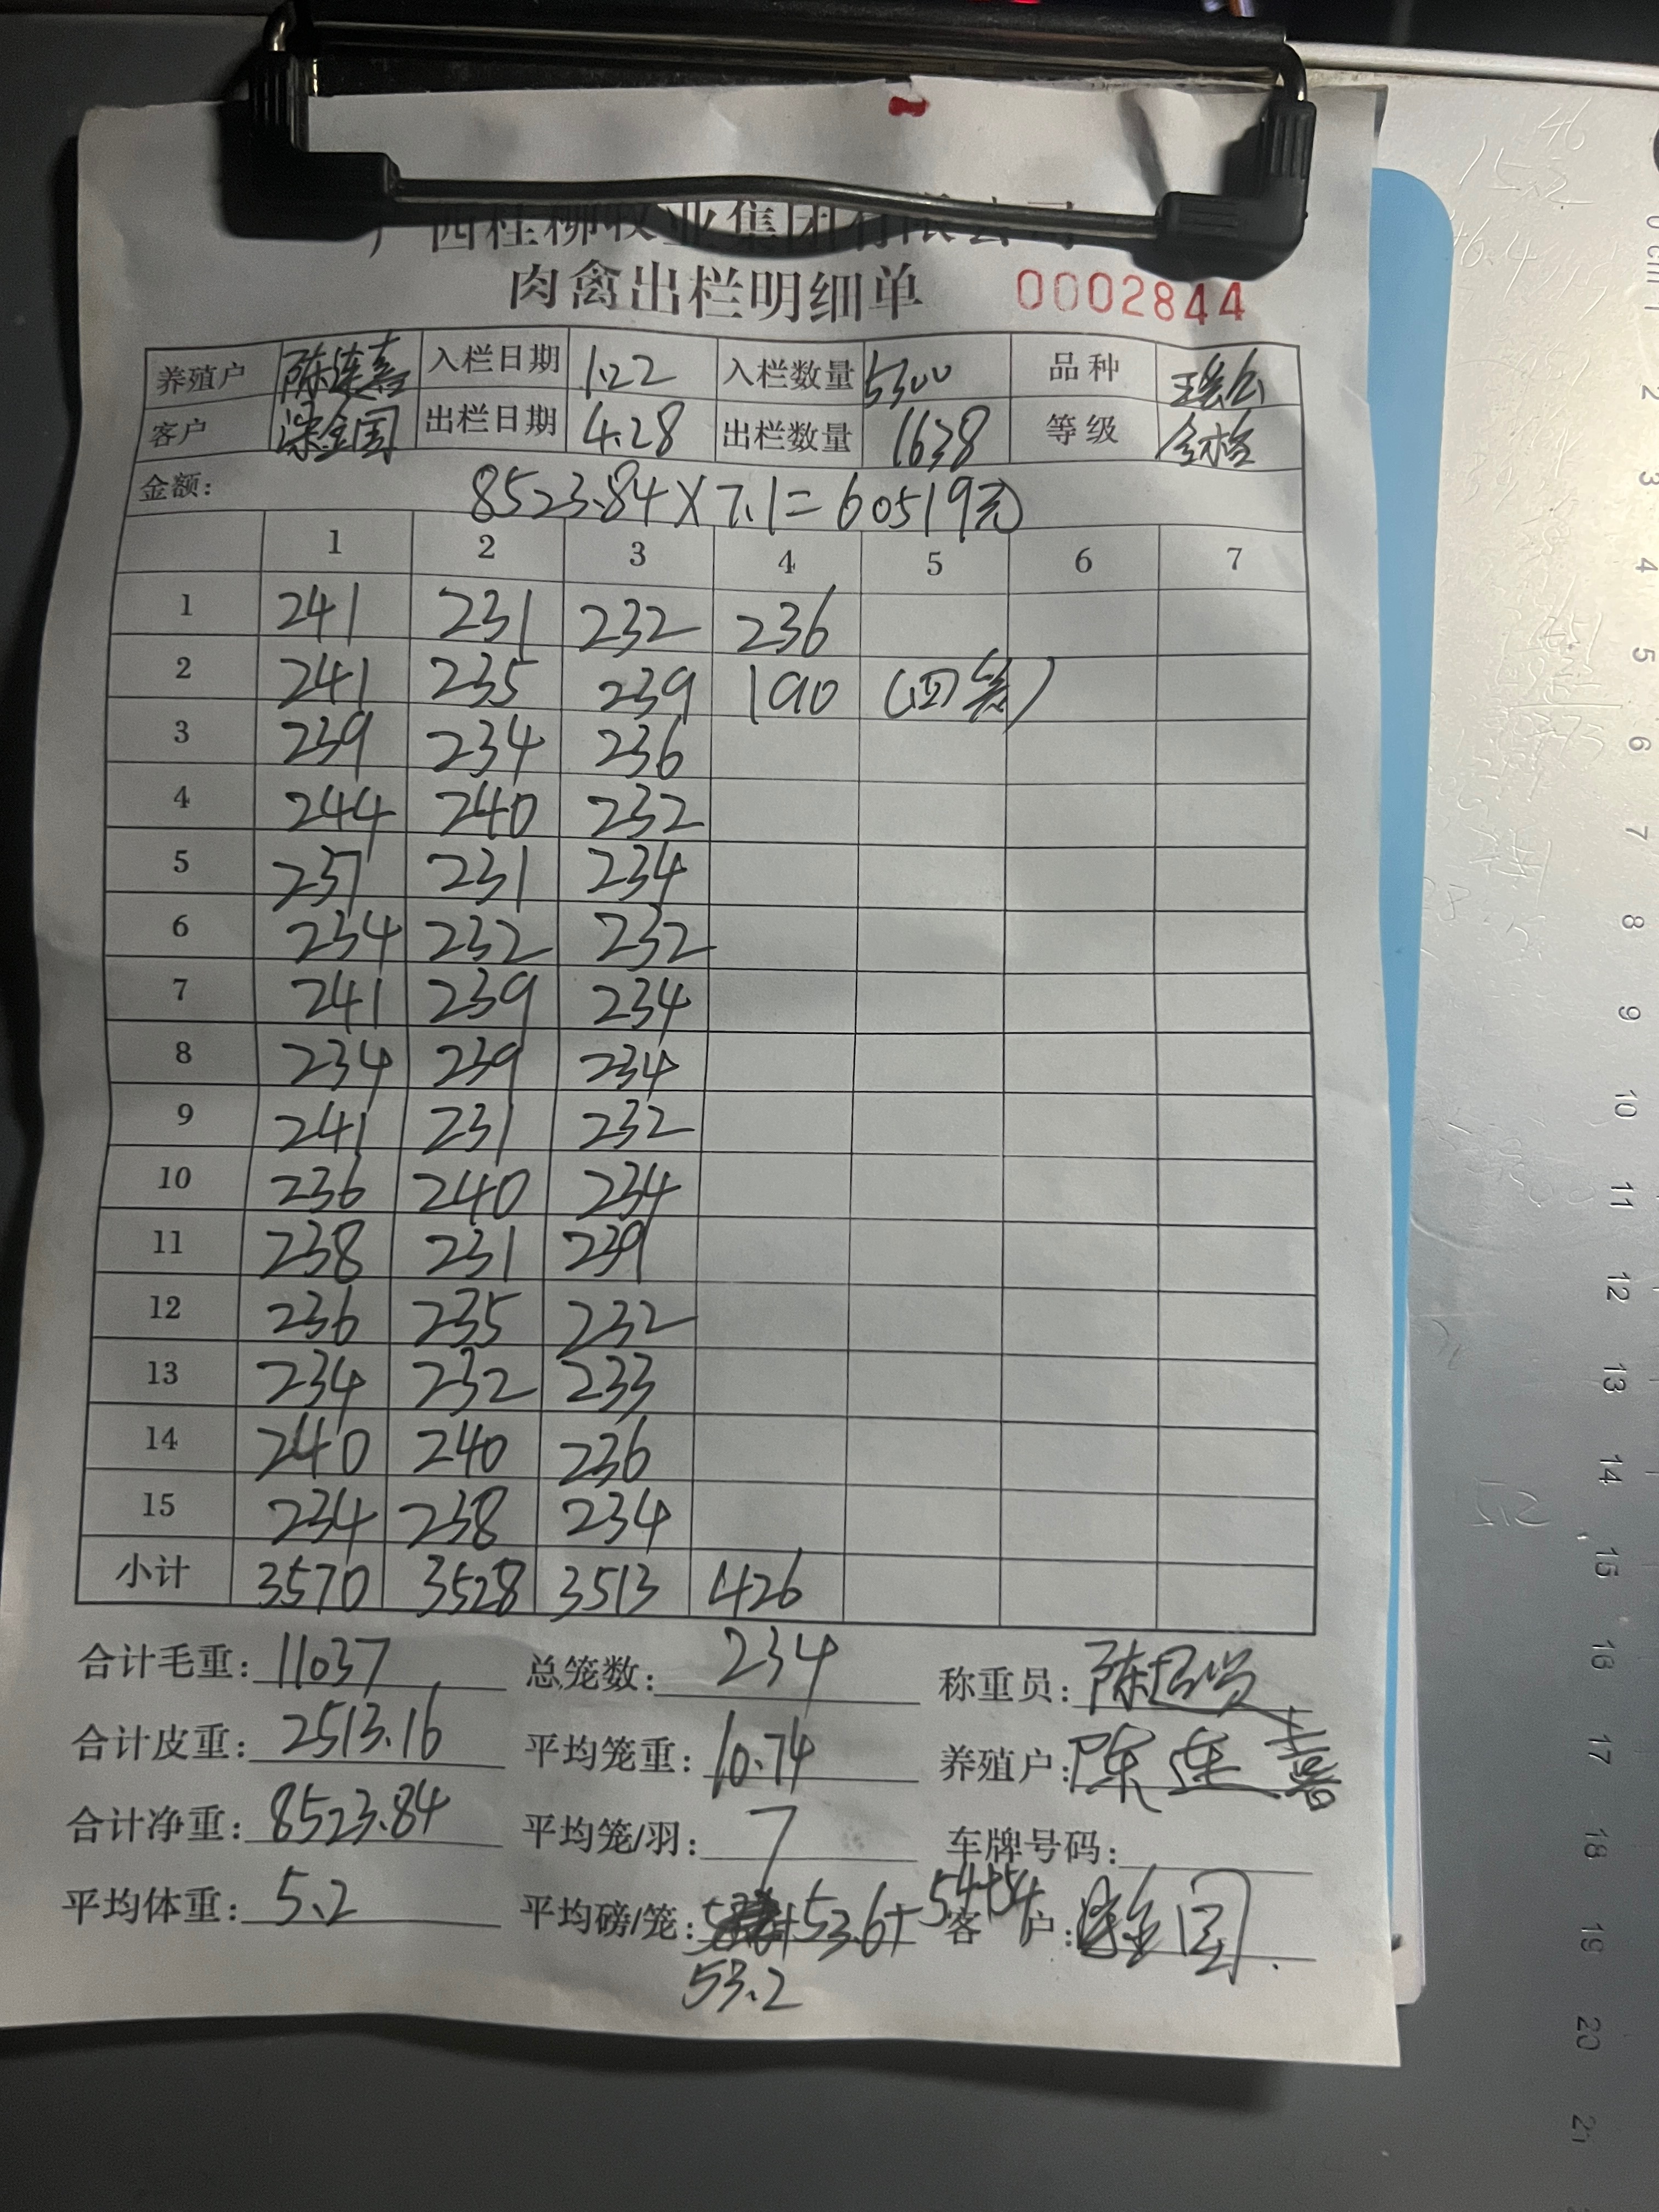 广西桂柳牧业集团有限公司
肉禽出栏明细单 0002844
养殖户 陈连嘉 入栏日期 1.22 入栏数量 5300 品种
客户 金国 出栏日期 4.28 出栏数量 1638 等级 合格
金额: 8523.84×7.1=60519元
1 2 3 4 5 6 7
1 241 231 232 236
2 241 235 239 190 (四笼)
3 239 234 236
4 244 240 232
5 237 231 234
6 234 232 232
7 241 239 234
8 234 239 234
9 241 231 232
10 236 240 234
11 238 231 239
12 236 235 232
13 234 232 233
14 240 240 236
15 234 238 234
小计 3570 3528 3513 426
合计毛重: 11037 总笼数: 234 称重员: 陈
合计皮重: 2513.16 平均笼重: 10.74 养殖户: 陈连嘉
合计净重: 8523.84 平均笼/羽: 7 车牌号码:
平均体重: 5.2 平均磅/笼: +53.6+54+54 客户: 金国
53.2
0 cm 1 2 3 4 5 6 7 8 9 10 11 12 13 14 15 16 17 18 19 20 21